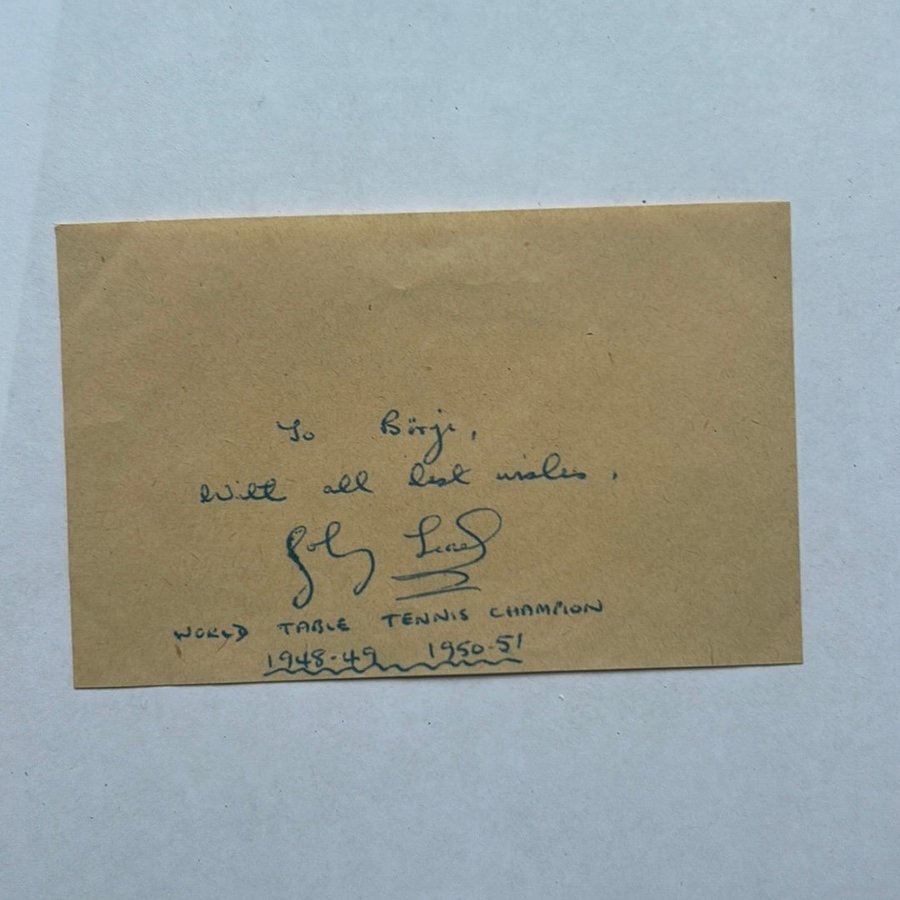 To Börje,
With all best wishes.
Johnny Leach
WORLD TABLE TENNIS CHAMPION
1948-49 1950-51